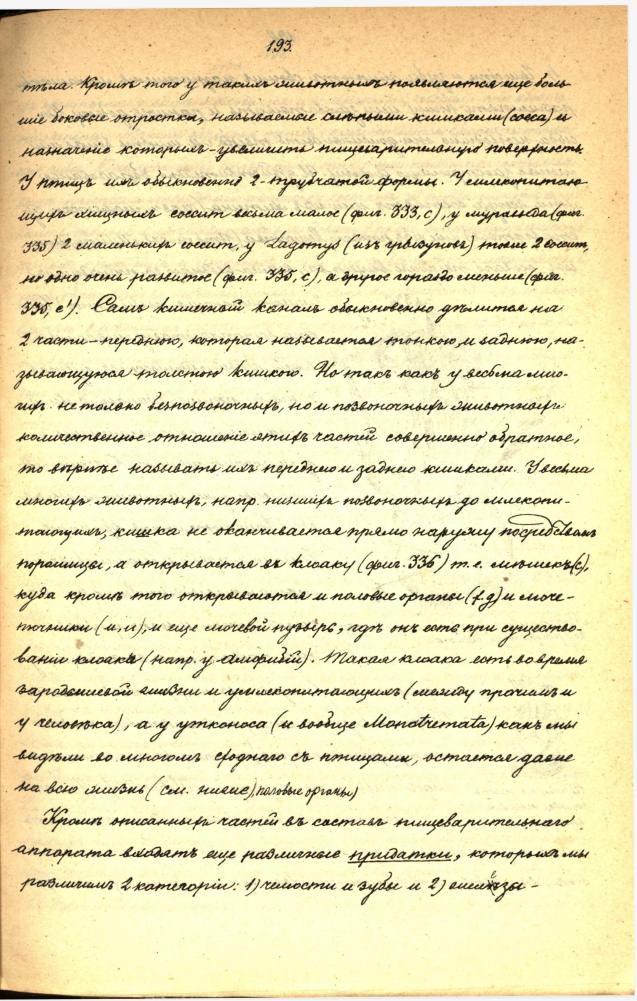 193.
тѣла. Кромѣ того у такихъ животныхъ появляются еще боль-
шіе боковые отростки, называемые слѣпыми кишками (coeca) и
назначеніе которыхъ – увеличить пищеварительную поверхность.
У птицъ ихъ обыкновенно 2 – трубчатой формы. У млекопитаю-
щихъ хищныхъ coecum весьма малое (фиг. 333, с), у муравьѣда (фиг.
335) 2 маленькихъ coecum, у Lagomys (изъ грызуновъ) тоже 2 coecum,
но одно очень развитое (фиг. 335, с), а другое гораздо меньше (фиг.
335, с'). Самъ кишечный каналъ обыкновенно дѣлится на
2 части – переднюю, которая называется тонкою, и заднюю, на-
зывающуюся толстою кишкою. Но такъ какъ у весьма мно-
гихъ не только безпозвоночныхъ, но и позвоночныхъ животныхъ
количественное отношеніе этихъ частей совершенно обратное,
то вѣрнѣе называть ихъ переднею и заднею кишками. У весьма
многихъ животныхъ, напр. низшихъ позвоночныхъ до млекопи-
тающихъ, кишка не оканчивается прямо наружу посредствомъ
порошицы, а открывается въ клоаку (фиг. 336) т. е. мѣшекъ (с),
куда кромѣ того открываются и половые органы (f. g) и моче-
точники (и, и), и еще мочевой пузырь, гдѣ онъ есть при существо-
ваніи клоаки (напр. у амфибій). Такая клоака есть во время
зародышевой жизни и у млекопитающихъ (между прочимъ и
у человѣка), а у утконоса (и вообще Monotremata) какъ мы
видѣли во многомъ сходнаго съ птицами, остается даже
на всю жизнь (см. ниже), половые органы)
Кромѣ описанныхъ частей въ составъ пищеварительнаго
аппарата входятъ еще различные придатки, которыхъ мы
различимъ 2 категоріи: 1) челюсти и зубы и 2) желѣзы –